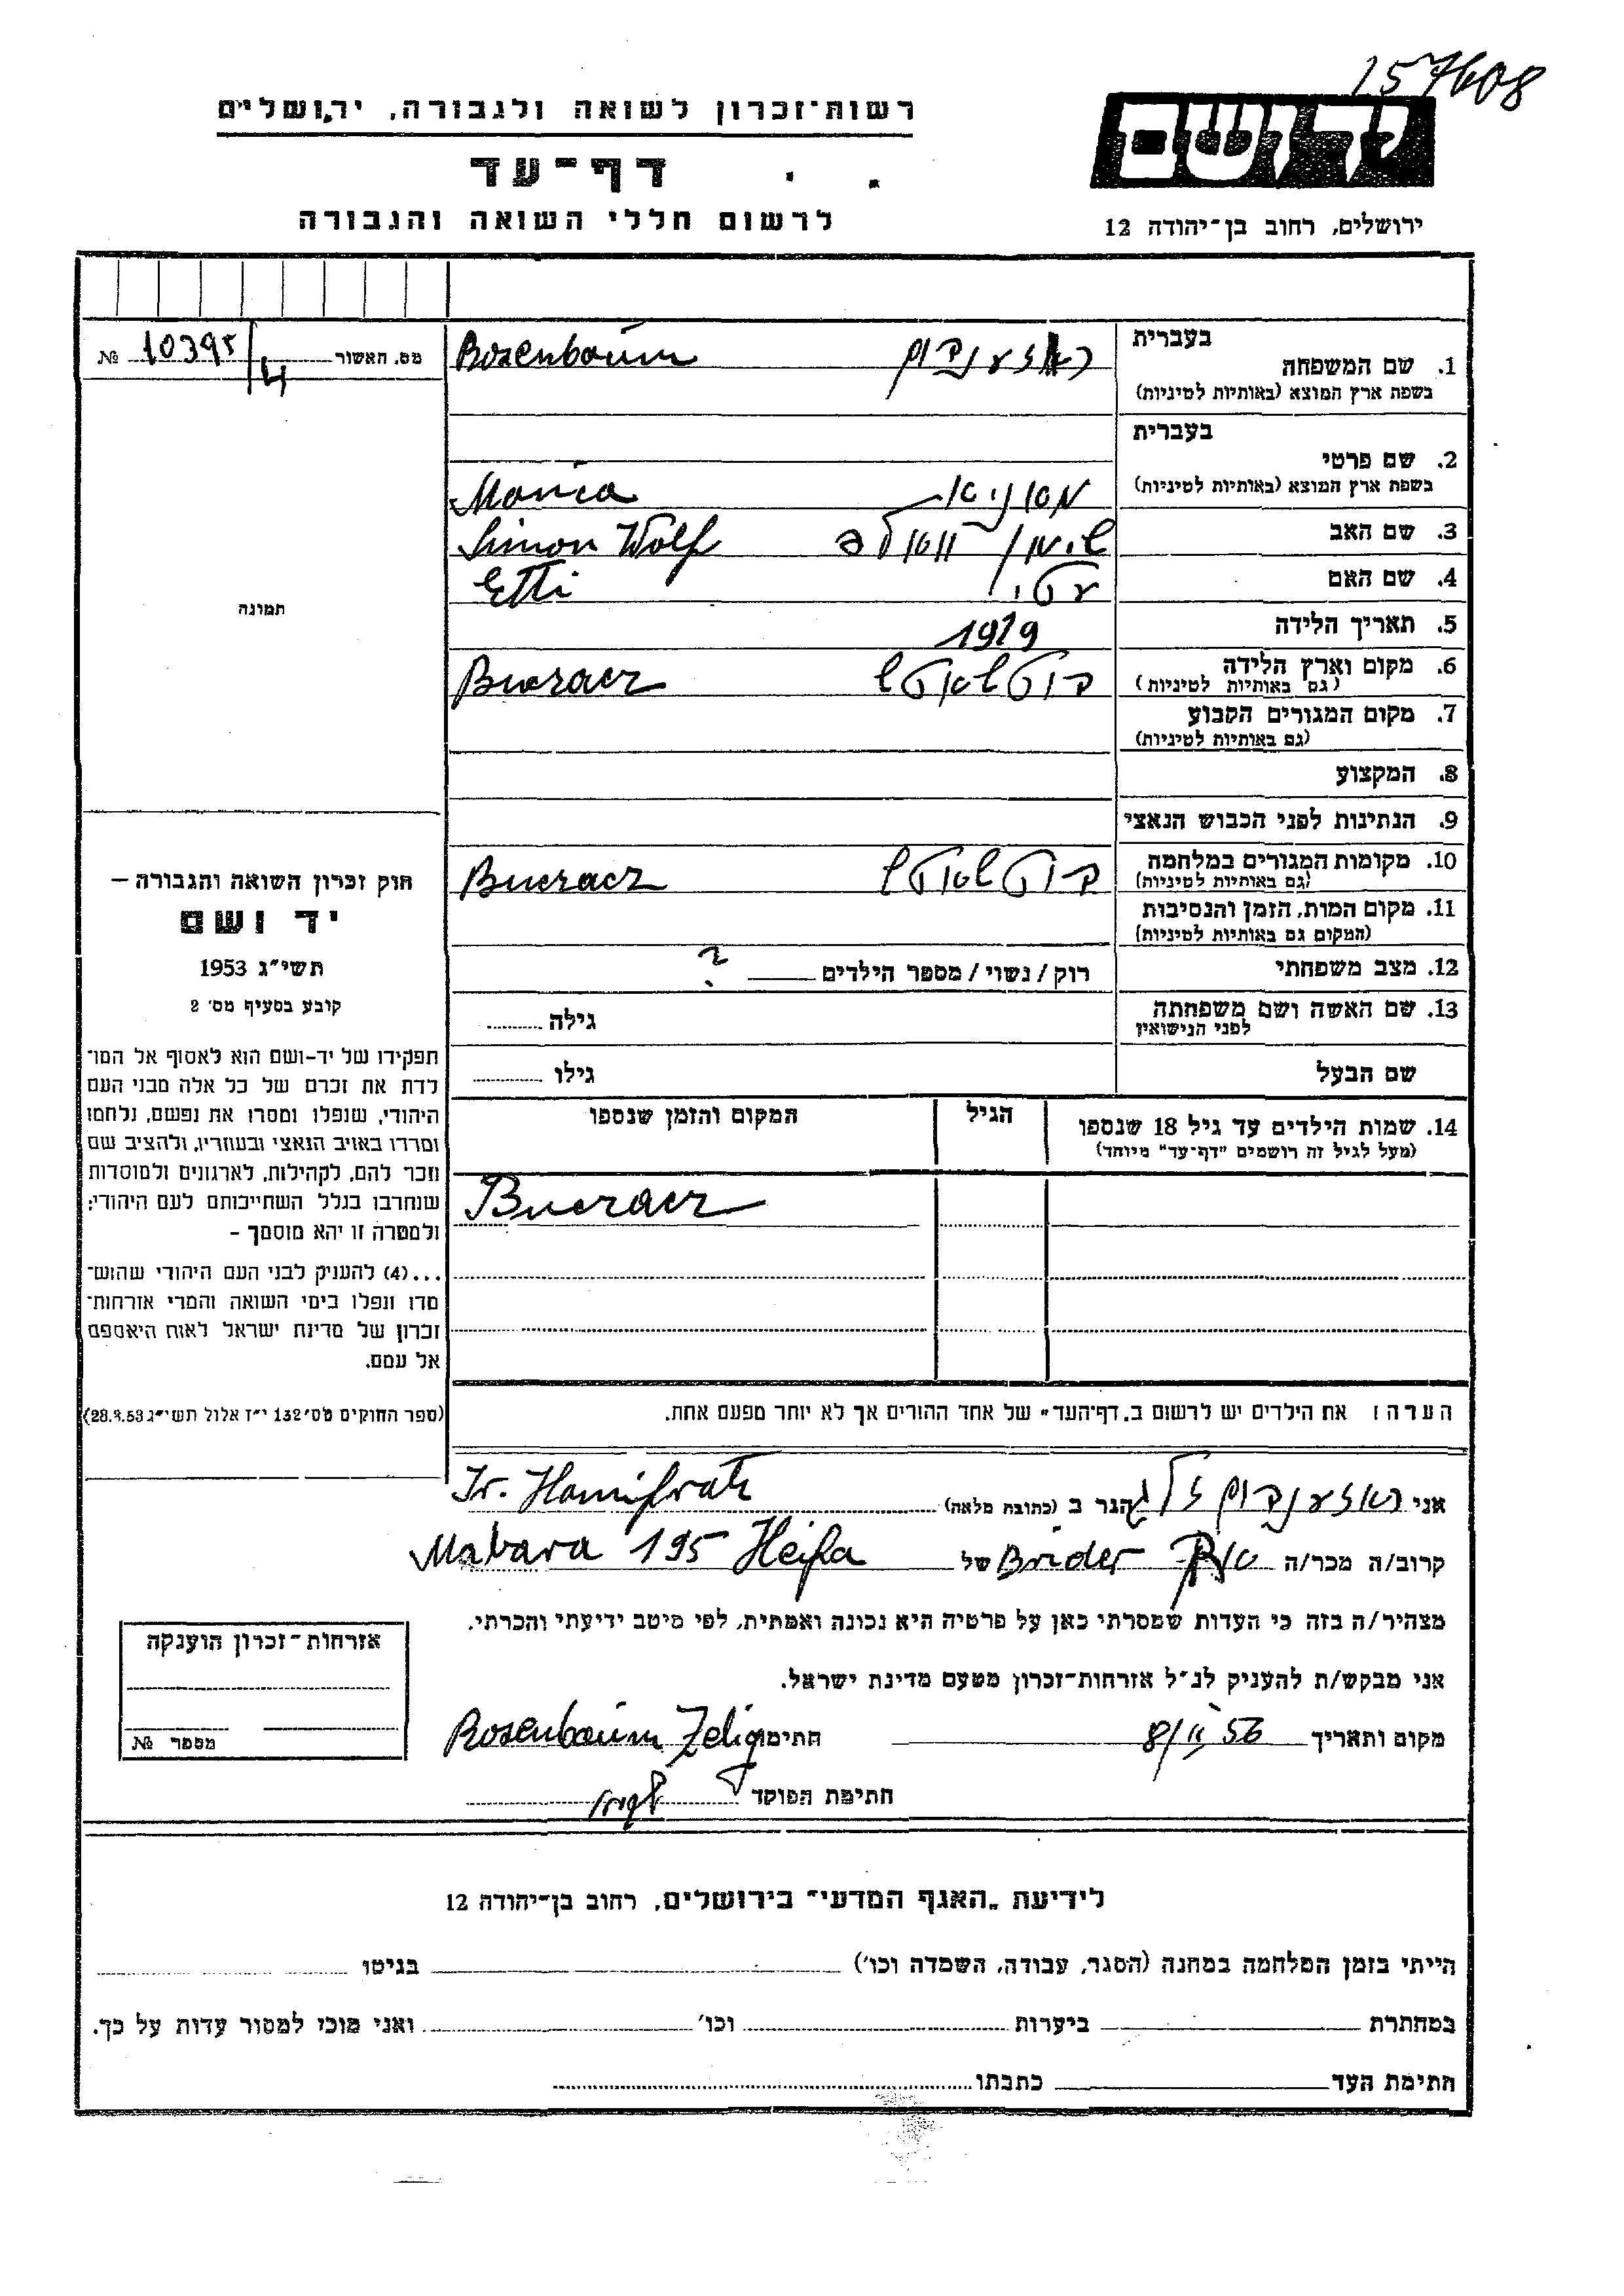 157608
רשות־זכרון לשואה ולגבורה, ירושלים
יד ושם
דף־עד
לרשום חללי השואה והגבורה
ירושלים, רחוב בן־יהודה 12
מס. האשור 10395/4 №
בעברית
1. שם המשפחה
בשפת ארץ המוצא (באותיות לטיניות)
ראזענבוים Rosenbaum
בעברית
2. שם פרטי
בשפת ארץ המוצא (באותיות לטיניות)
מאניא Mania
3. שם האב שימון וואלף Simon Wolf
4. שם האם עטי Etti
5. תאריך הלידה 1919
6. מקום וארץ הלידה
(גם באותיות לטיניות)
בוטשאטש Buczacz
7. מקום המגורים הקבוע
(גם באותיות לטיניות)
8. המקצוע
9. הנתינות לפני הכבוש הנאצי
10. מקומות המגורים במלחמה
(גם באותיות לטיניות)
בוטשאטש Buczacz
11. מקום המות, הזמן והנסיבות
(המקום גם באותיות לטיניות)
12. מצב משפחתי רוק / נשוי / מספר הילדים ?
13. שם האשה ושם משפחתה
לפני הנישואין
גילה
שם הבעל גילו
14. שמות הילדים עד גיל 18 שנספו
(מעל לגיל זה רושמים "דף־עד" מיוחד)
הגיל
המקום והזמן שנספו
Buczacz
הערה: את הילדים יש לרשום ב„דף־העד" של אחד ההורים אך לא יותר מפעם אחת.
תמונה
חוק זכרון השואה והגבורה —
יד ושם
תשי"ג 1953
קובע בסעיף מס' 2
תפקידו של יד-ושם הוא לאסוף אל המו־
לדת את זכרם של כל אלה מבני העם
היהודי, שנפלו ומסרו את נפשם, נלחמו
ומרדו באויב הנאצי ובעוזריו, ולהציב שם
וזכר להם, לקהילות, לארגונים ולמוסדות
שנחרבו בגלל השתייכותם לעם היהודי;
ולמטרה זו יהא מוסמך –
...(4) להעניק לבני העם היהודי שהוש־
מדו ונפלו בימי השואה והמרי אזרחות־
זכרון של מדינת ישראל לאות היאספם
אל עמם.
(ספר החוקים מס' 132 י"ז אלול תשי"ג 28.8.53)
אני ראזענבוים זליג הגר ב (כתובת מלאה) Ir. Hamifratz
קרוב/ה מכר/ה Brider של Mabara 195 Heifa
מצהיר/ה בזה כי העדות שמסרתי כאן על פרטיה היא נכונה ואמתית, לפי מיטב ידיעתי והכרתי.
אני מבקש/ת להעניק לנ"ל אזרחות־זכרון מטעם מדינת ישראל.
מקום ותאריך 8/II 56 חתימה Rosenbaum Zelig
חתימת הפוקד
אזרחות־זכרון הוענקה
מספר №
לידיעת „האגף המדעי" בירושלים, רחוב בן־יהודה 12
הייתי בזמן המלחמה במחנה (הסגר, עבודה, השמדה וכו') בגיטו
במחתרת ביערות וכו' ואני מוכן למסור עדות על כך.
חתימת העד כתבתו